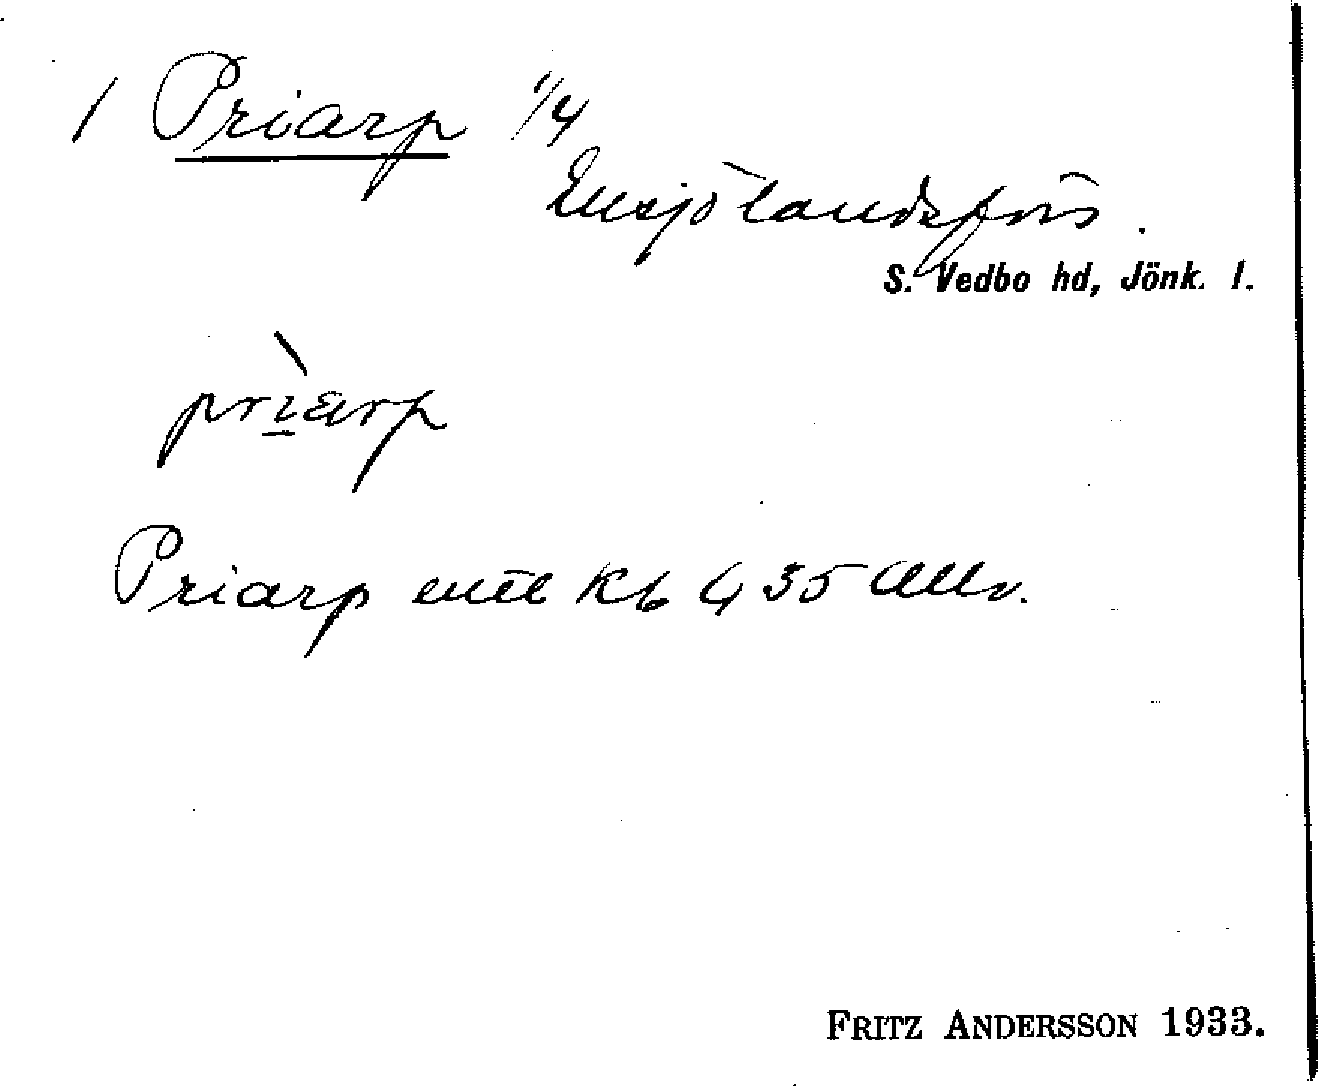 1 Priarp 1/4
Eksjö landsförs.
S. Vedbo hd, Jönk. l.
prìarp
Priarp enl Kb 435 Allm.
FRITZ ANDERSSON 1933.